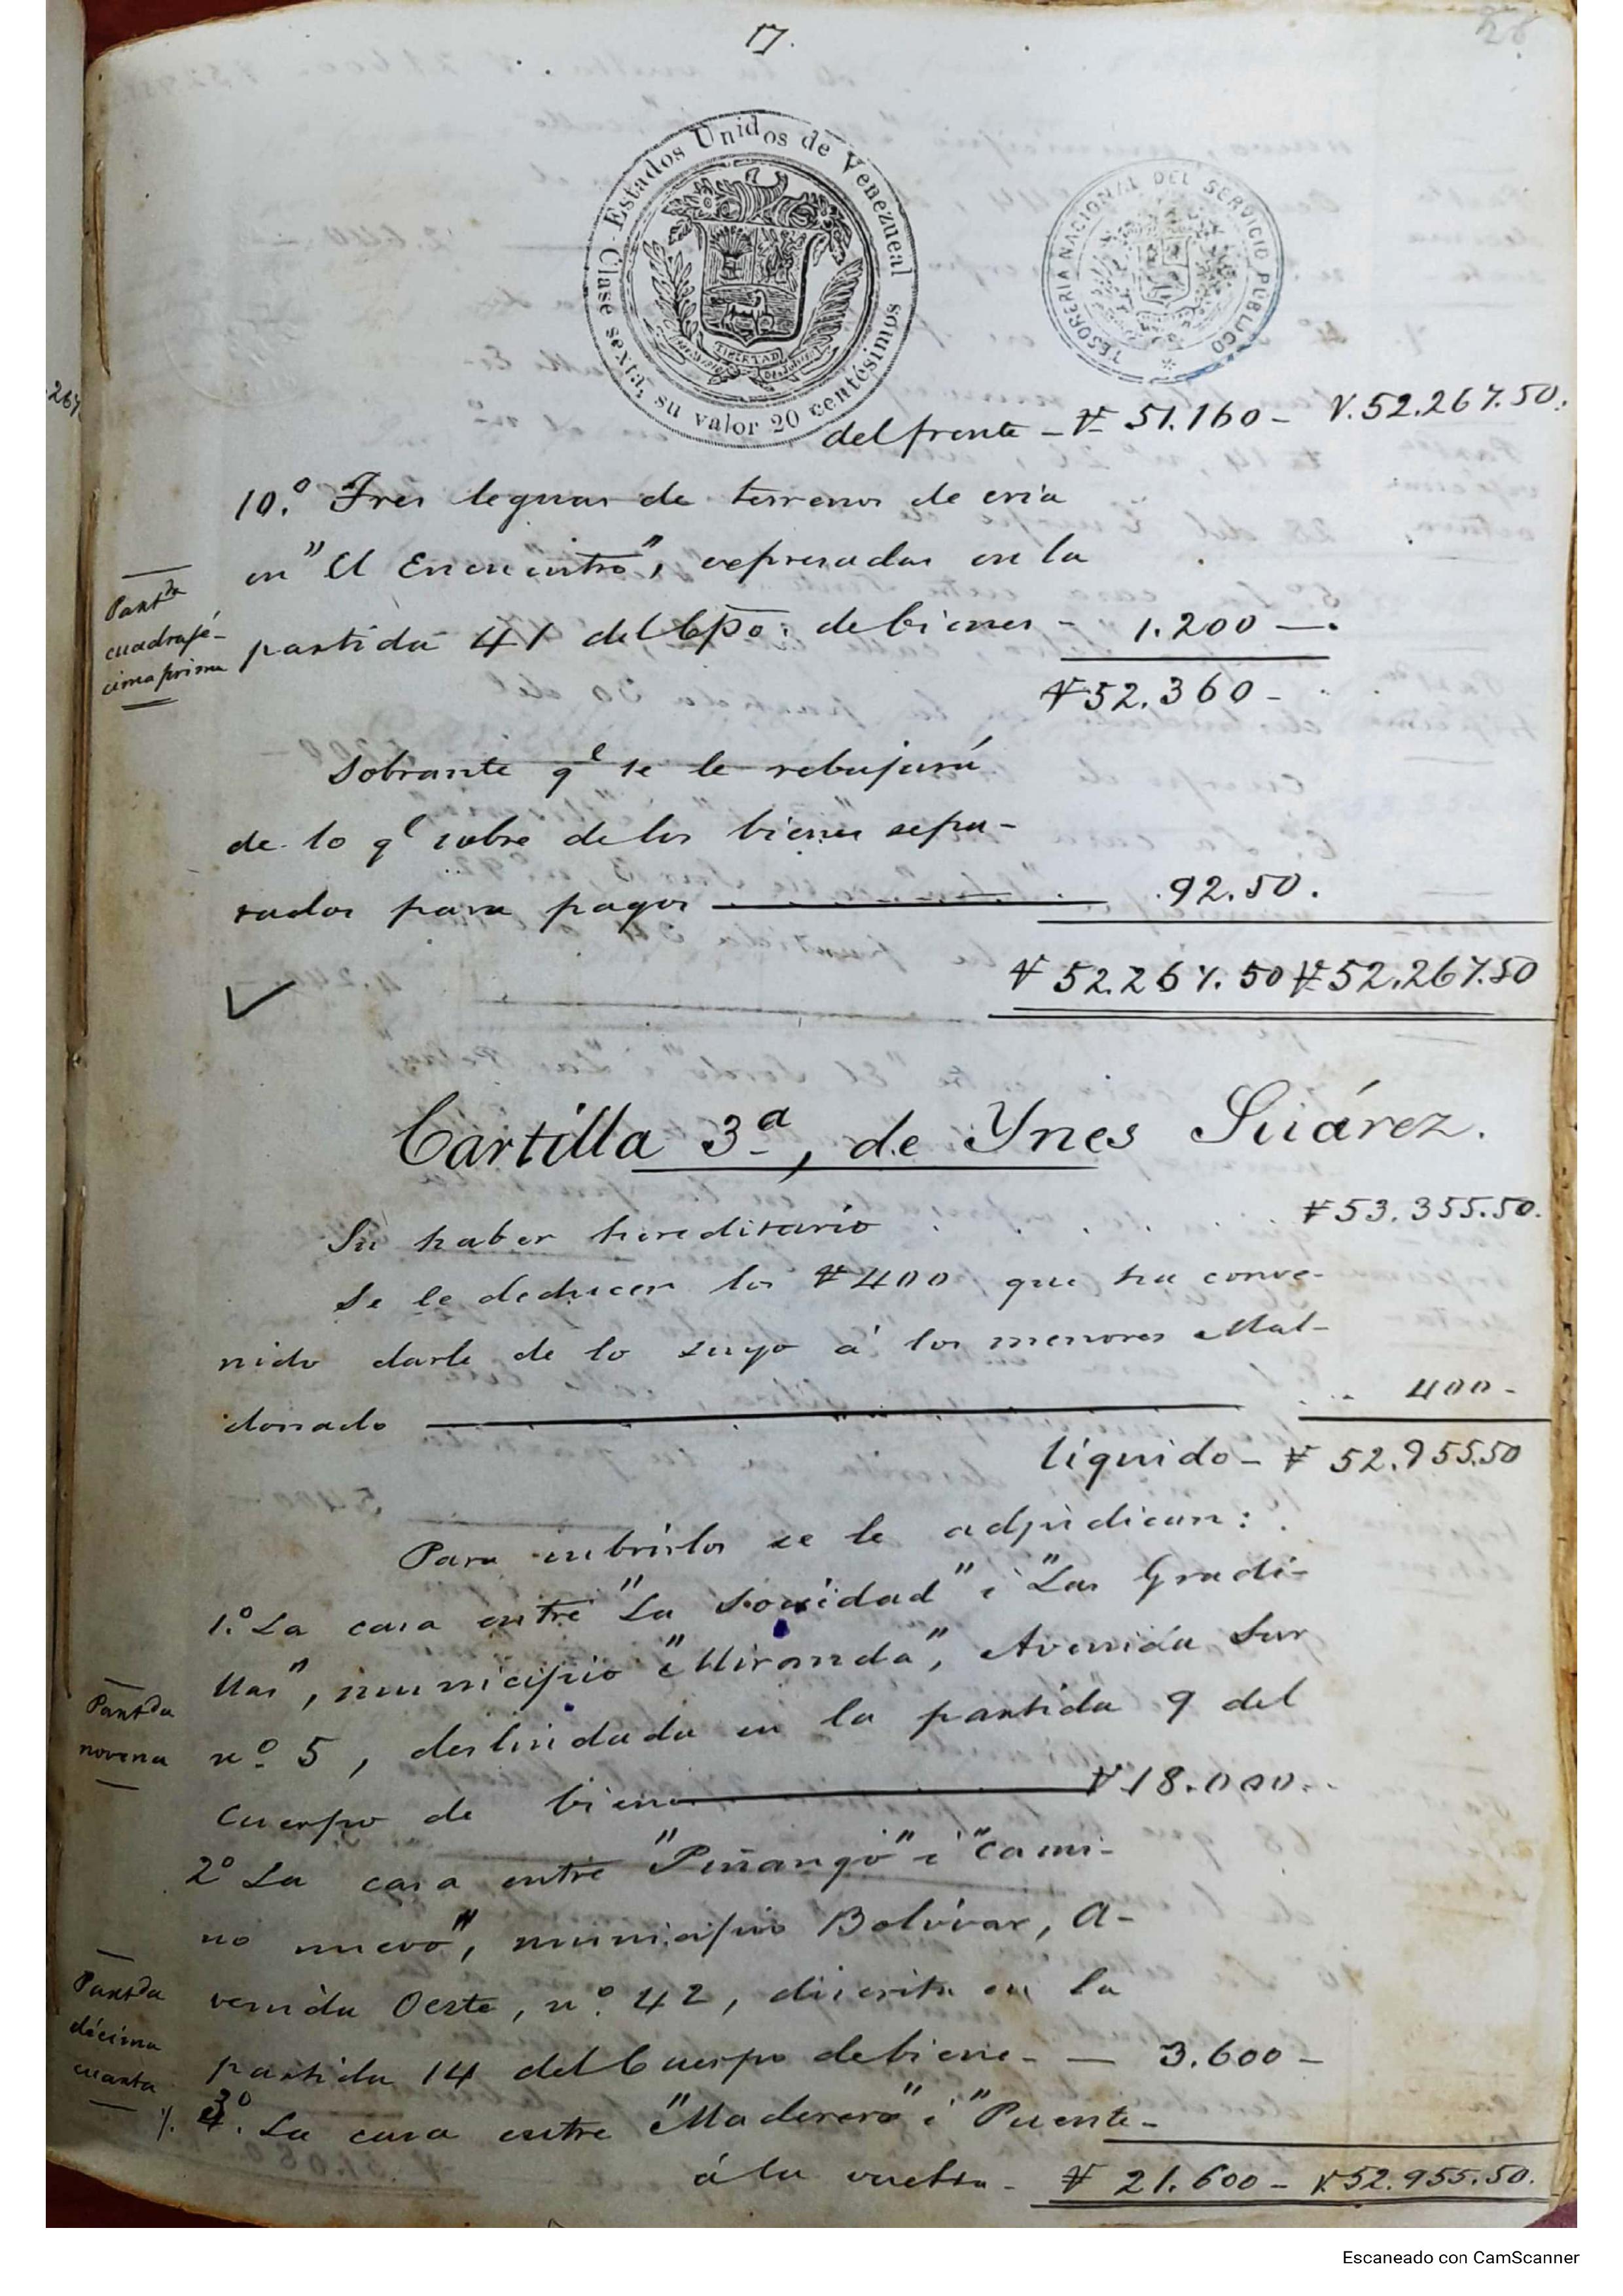 17.
Estados Unidos de Venezueal
Clase sexta, su valor 20 centésimos
TESORERIA NACIONAL DEL SERVICIO PUBLICO
267
del frente - V 51.160 - V. 52.267.50.
10.º Tres leguas de terrenos de cria
en "El Encuentro", expresadas en la
Partda
cuadragé-
cima prima
partida 41 del Cpo: de bienes - 1.200 -.
V 52.360 -
Sobrante qe se le rebajará
de lo qe sobre de los bienes sepa-
rados para pagos 92.50.
V 52.267.50 V 52.267.50
Cartilla 3ª, de Ynes Suárez.
Su haber hereditario . . . . V 53.355.50.
Se le deducen los V 400 que ha conve-
nido darle de lo suyo á los menores Mal-
donado 400 -
líquido - V 52.955.50
Para cubrirlos se le adjudican:
1.º La casa entre "La Sociedad" i "Las Gradi-
llas", municipio "Miranda", Avenida Sur
Partda
novena
nº 5, deslindada en la partida 9 del
cuerpo de bienes V 18.000.
2º La casa entre "Piñango" i "Cami-
no nuevo", municipio Bolívar, A-
Partda
décima
cuarta
venida Oeste, nº 42, discrita en la
partida 14 del Cuerpo de biene- - 3.600 -
3º. La casa entre "Maderero" i "Puente-
á la vuelta - V 21.600 - V. 52.955.50.
Escaneado con CamScanner